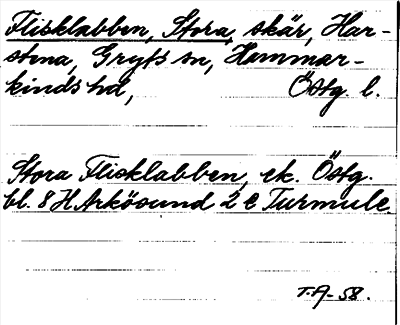 Flisklabben, Stora, skär, Har-
stena, Gryts sn, Hammar-
kinds hd, Östg. l.
Stora Flisklabben, ek. Östg.
bl. 8 H Arkösund 2 e Turmule.
T.A-58.